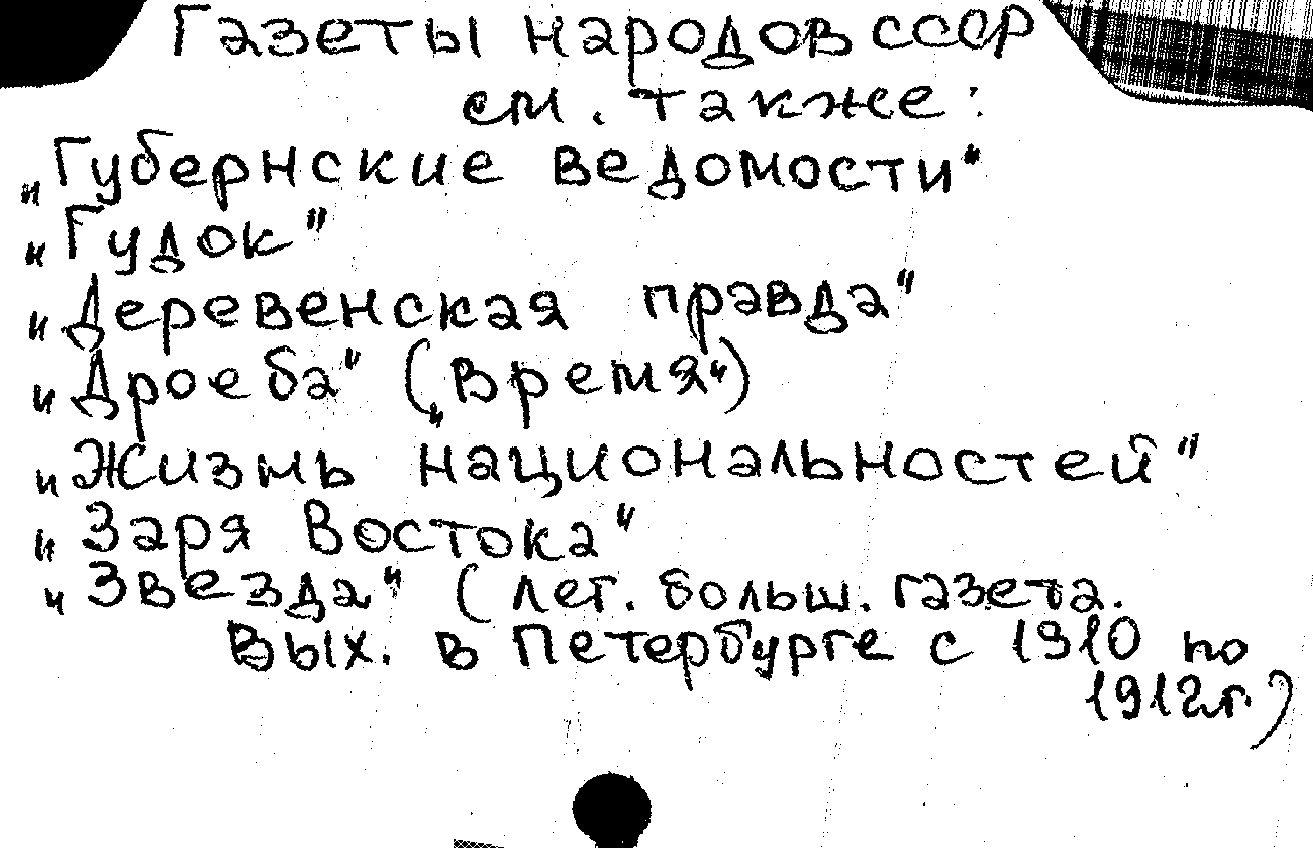 Газеты народов СССР
см. также:
„Губернские ведомости"
„Гудок"
„Деревенская правда"
„Дроеба" („Время")
„Жизнь национальностей"
„Заря Востока"
„Звезда" (лег. больш. газета.
Вых. в Петербурге с 1910 по
1912г.)